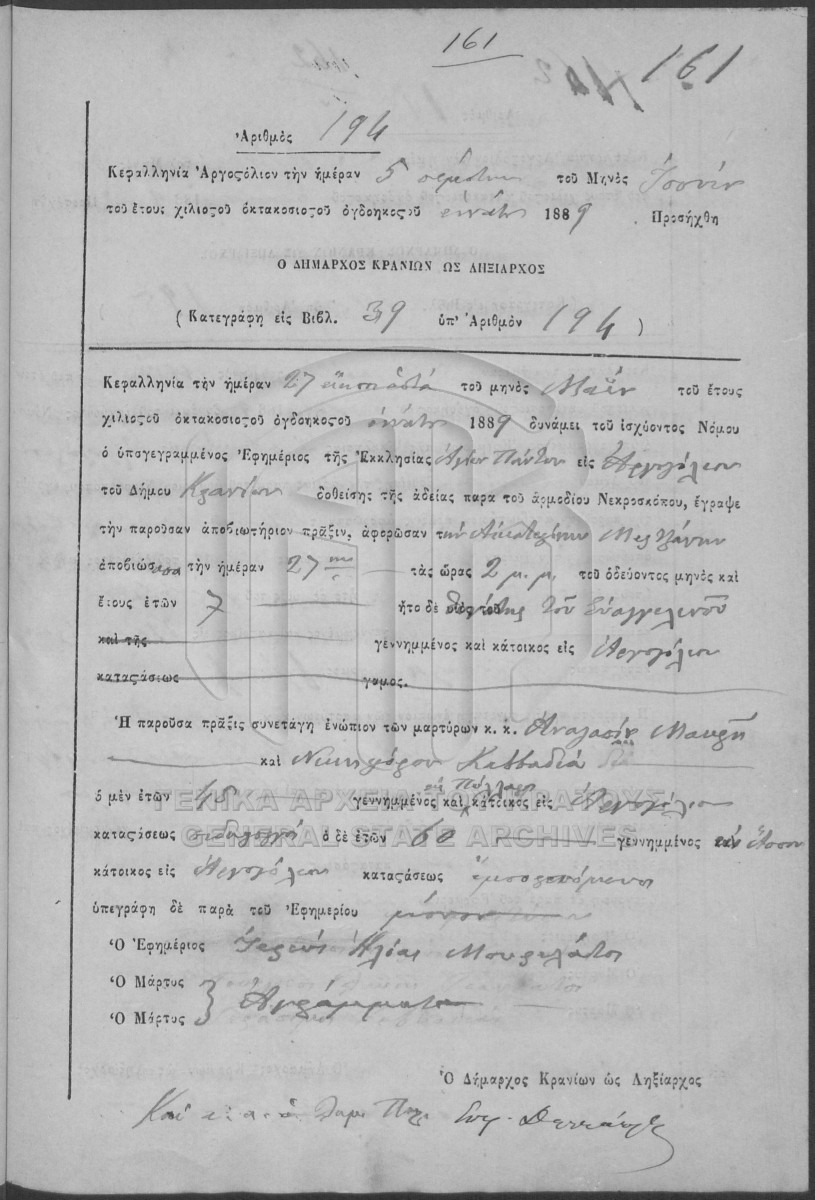 161
161
Ἀριθμὸς 194
Κεφαλληνία Ἀργοςόλιον τὴν ἡμέραν 5 πέμπτην τοῦ Μηνὸς Ἰουνίου
τοῦ ἔτους χιλιοςοῦ ὀκτακοσιοςοῦ ὀγδοηκοςοῦ ἐννάτου 1889 Προσήχθη
Ο ΔΗΜΑΡΧΟΣ ΚΡΑΝΙΩΝ ΩΣ ΛΗΞΙΑΡΧΟΣ
(Κατεγράφη εἰς Βιβλ. 39 ὑπ' Ἀριθμὸν 194)
Κεφαλληνία τὴν ἡμέραν 27 τοῦ μηνὸς Μαΐου τοῦ ἔτους
χιλιοςοῦ ὀκτακοσιοςοῦ ὀγδοηκοςοῦ ἐννάτου 1889 δυνάμει τοῦ ἰσχύοντος Νόμου
ὁ ὑπογεγραμμένος Ἐφημέριος τῆς Ἐκκλησίας Ἁγίων Πάντων εἰς Ἀργοςόλιον
τοῦ Δήμου Κρανίων δοθείσης τῆς ἀδείας παρα τοῦ ἁρμοδίου Νεκροσκόπου, ἔγραψε
τὴν παροῦσαν ἀποβιωτήριον πρᾶξιν, ἀφορῶσαν τὴν Αἰκατερίνην
ἀποβιώσασα τὴν ἡμέραν 27 τὰς ὥρας 2 μ.μ. τοῦ ὁδεύοντος μηνὸς καὶ
ἔτους ἐτῶν 7 ἦτο δὲ τοῦ Εὐαγγελινοῦ
καὶ τῆς γεννημμένος καὶ κάτοικος εἰς Ἀργοςόλιον
καταςάσεως γαμος.
Ἡ παροῦσα πρᾶξις συνετάγη ἐνώπιον τῶν μαρτύρων κ. κ. Ἀναςασίου
καὶ Νικηφόρου Καββαδία
ὁ μὲν ἐτῶν 48 γεννημμένος καὶ κάτοικος εἰς Ἀργοςόλιον
καταςάσεως ὁ δὲ ἐτῶν 60 γεννημμένος εἰς Ἄσσον
κάτοικος εἰς Ἀργοςόλιον καταςάσεως ἐμπορευόμενος
ὑπεγράφη δὲ παρὰ τοῦ Ἐφημερίου μόνον
Ὁ Ἐφημέριος Ἱερεὺς Ἠλίας Μουρελάτος
Ὁ Μάρτυς
Ὁ Μάρτυς Ἀγράμματοι
Ὁ Δήμαρχος Κρανίων ὡς Ληξίαρχος
ΓΕΝΙΚΑ ΑΡΧΕΙΑ ΤΟΥ ΚΡΑΤΟΥΣ
GENERAL STATE ARCHIVES